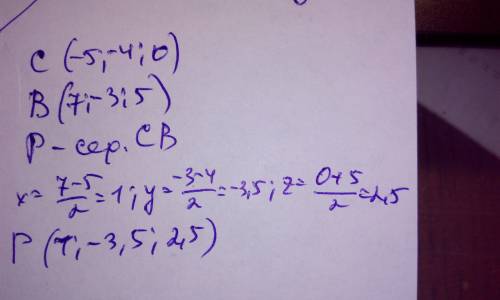 C (-5;-4;0)
B (7;-3;5)
P - сер. CB
x = 7-5/2 = 1; y = -3-4/2 = -3,5; z = 0+5/2 = 2,5
P (1;-3,5; 2,5)